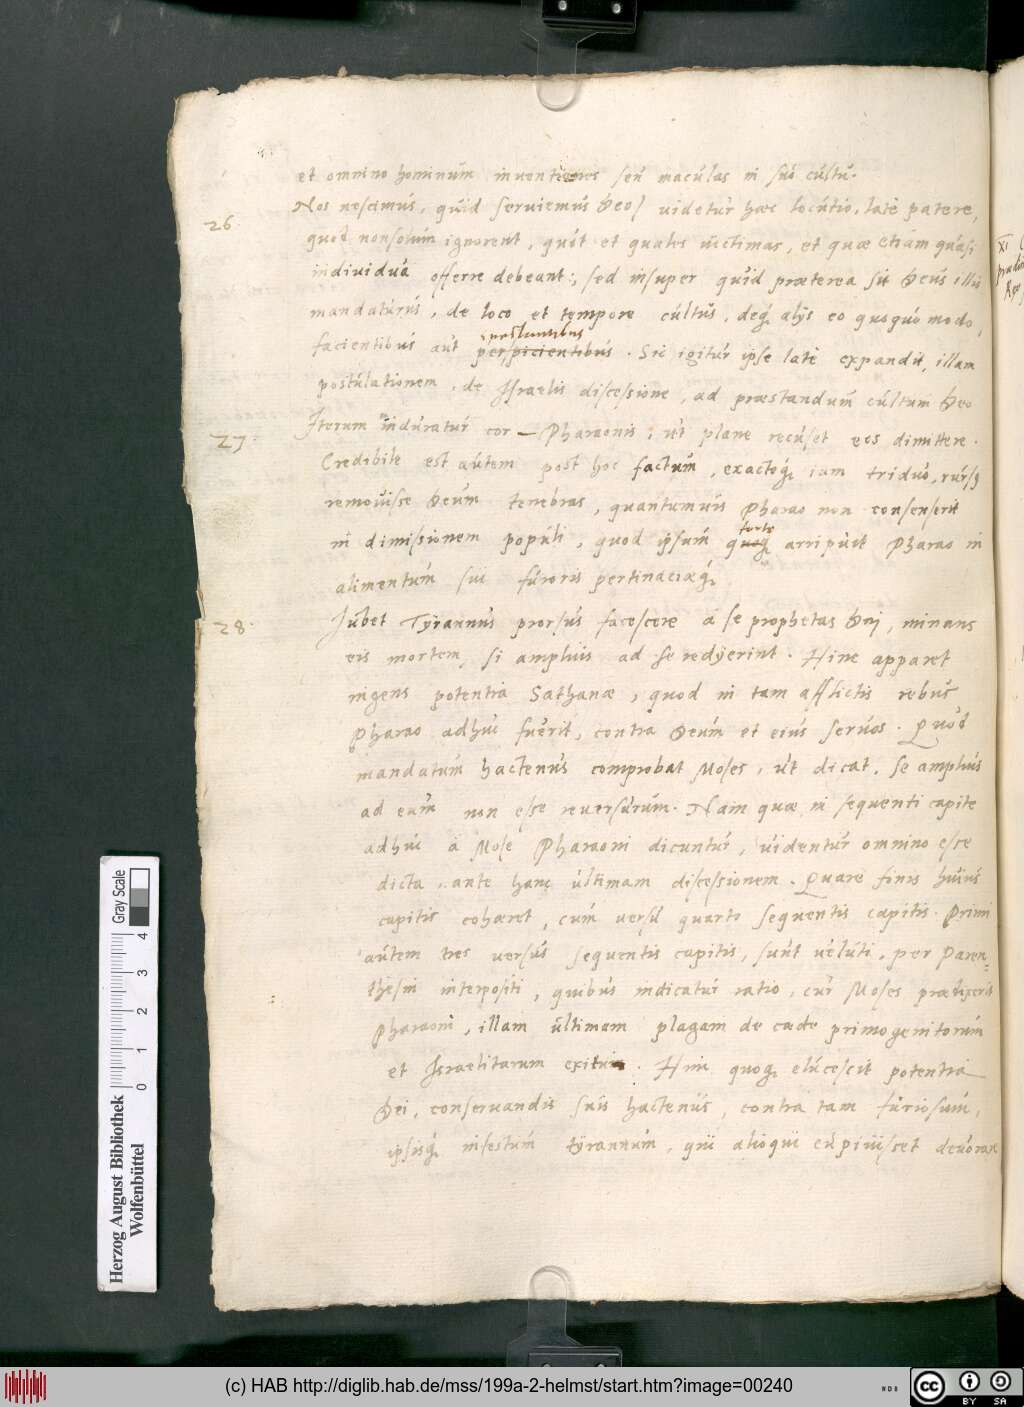 et omnino hominum inventiones seu maculas in suo cultu.
26 Nos nescimus, quid serviemus Deo) videtur haec locutio, late patere,
quod non solum ignorent, quot et quales victimas, et quae etiam quasi
individua offerre debeant; sed insuper quid praeterea sit Deus illis
mandaturus, de loco et tempore cultus, deq́; alijs eo quoquo modo,
facientibus aut perspicientibus. Sic igitur ipse late expandit, illam
postulationem, de Israelis discessione, ad praestandum cultum Deo
27. Iterum induratur cor Pharaonis, ut plane recuset eos dimittere.
Credibile est autem post hoc factum, exactoq́; iam triduo, rursq
removisse Deum tenebras, quantumvis Pharao non consenserit
forte
in dimissionem populi, quod ipsum quoq́; arripuit Pharao in
alimentum sui furoris pertinaciaeq́;
28. Iubet Tyrannus prorsus facescere a se prophetas Dei, minans
eis mortem, si amplius ad se redijerint. Hinc apparet
ingens potentia Sathanae, quod in tam afflictis rebus
Pharao adhuc fuerit, contra Deum et eius servos. Quod
mandatum hactenus comprobat Moses, ut dicat, se amplius
ad eum non esse reversurum. Nam quae in sequenti capite
adhuc a Mose Pharaoni dicuntur, videntur omnino esse
dicta, ante hanc ultimam discessionem. Quare finis huius
capitis cohaeret, cum versu quarto sequentis capitis. Primi
autem tres versus sequentis capitis, sunt veluti, per Paren=
thesin interpositi, quibus indicatur ratio, cur Moses praedixerit
Pharaoni, illam ultimam plagam de caede primogenitorum
et Israelitarum exitum. Hinc quoq́; elucescit potentia
Dei, conservandis suis hactenus, contra tam furiosum,
ipsisq́; infestum tyrannum, qui alioqui cupivisset devorare
XI
Herzog August Bibliothek
Wolfenbüttel
0 1 2 3 4
Gray Scale
(c) HAB http://diglib.hab.de/mss/199a-2-helmst/start.htm?image=00240
cc BY SA